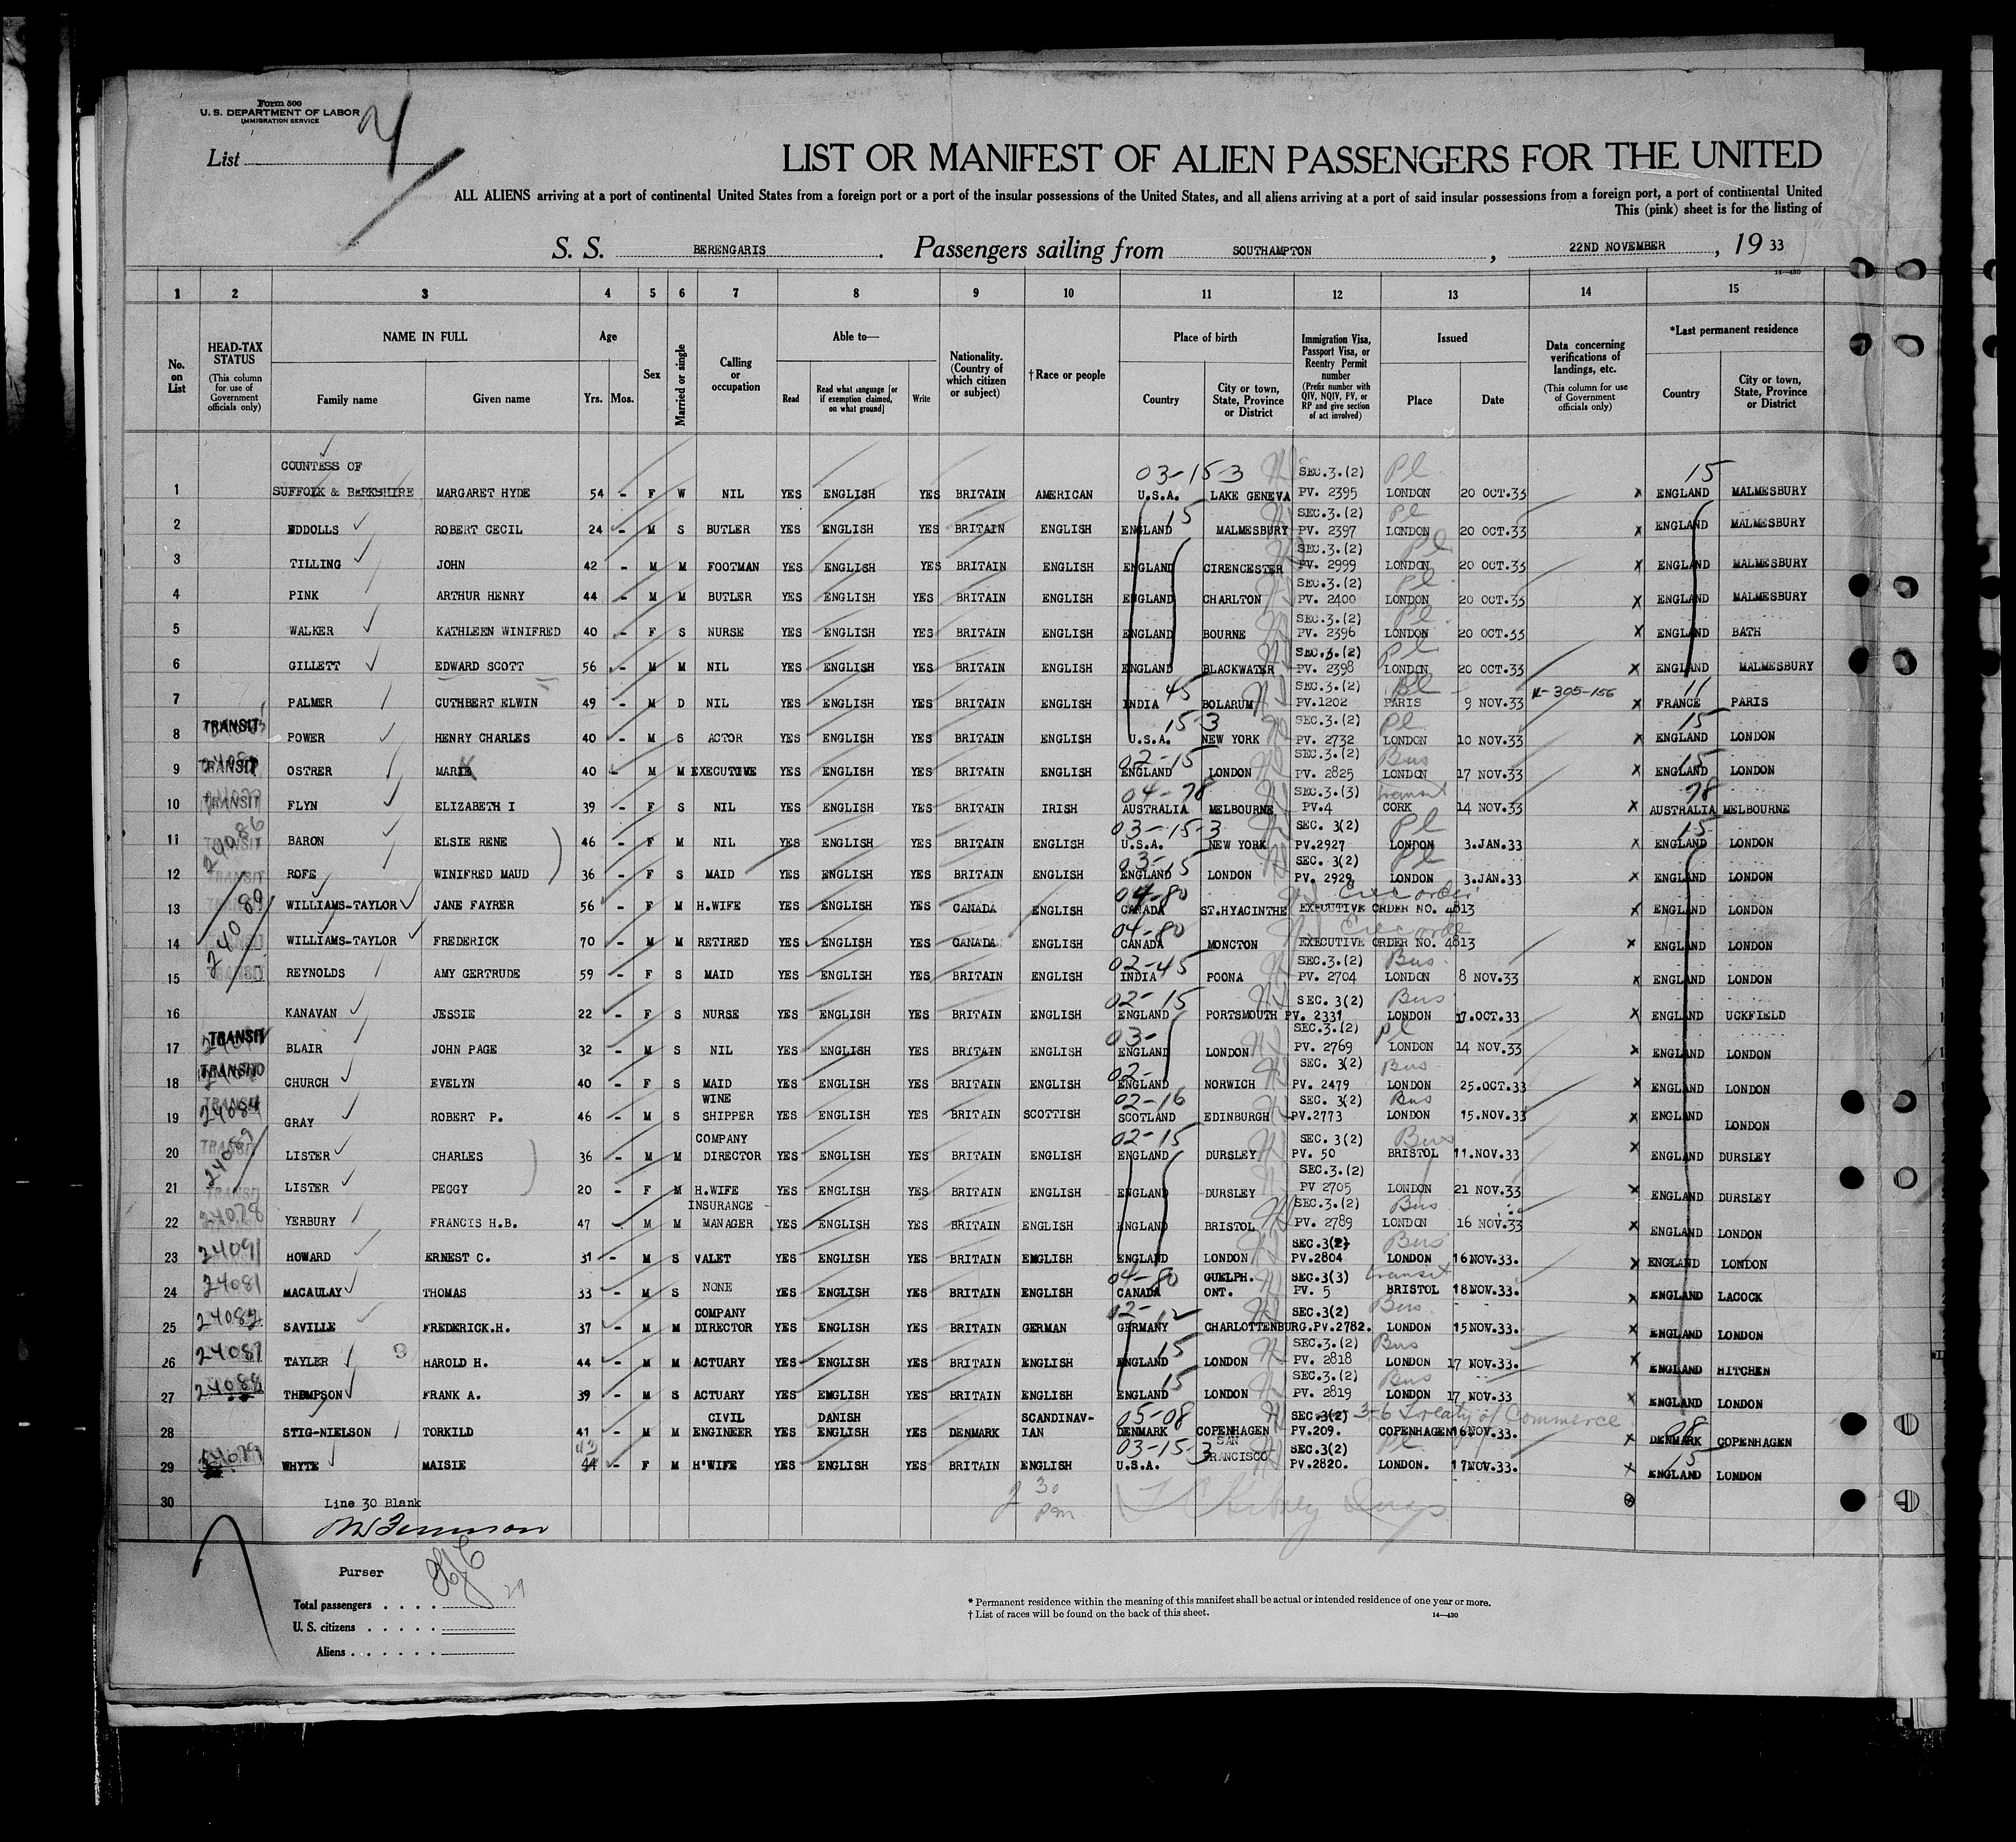 Form 500
U. S. DEPARTMENT OF LABOR
IMMIGRATION SERVICE
List 4
LIST OR MANIFEST OF ALIEN PASSENGERS FOR THE UNITED
ALL ALIENS arriving at a port of continental United States from a foreign port or a port of the insular possessions of the United States, and all aliens arriving at a port of said insular possessions from a foreign port, a port of continental United
This (pink) sheet is for the listing of
S. S. BERENGARIS. Passengers sailing from SOUTHAMPTON, 22ND NOVEMBER, 19 33
14—430
1 2 3 4 5 6 7 8 9 10 11 12 13 14 15
No. on List
HEAD-TAX STATUS (This column for use of Government officials only)
NAME IN FULL
Family name Given name
Age
Yrs. Mos.
Sex
Married or single
Calling or occupation
Able to—
Read Read what language [or if exemption claimed, on what ground] Write
Nationality. (Country of which citizen or subject)
†Race or people
Place of birth
Country City or town, State, Province or District
Immigration Visa, Passport Visa, or Reentry Permit number (Prefix number with QIV, NQIV, PV, or RP and give section of act involved)
Issued
Place Date
Data concerning verifications of landings, etc. (This column for use of Government officials only)
*Last permanent residence
Country City or town, State, Province or District
COUNTESS OF 03-15-3 SEC.3.(2) Pl 15
1 SUFFOLK & BERKSHIRE MARGARET HYDE 54 - F W NIL YES ENGLISH YES BRITAIN AMERICAN U.S.A. LAKE GENEVA PV. 2395 LONDON 20 OCT.33 x ENGLAND MALMESBURY
15 SEC.3.(2) Pl
2 EDDOLLS ROBERT CECIL 24 - M S BUTLER YES ENGLISH YES BRITAIN ENGLISH ENGLAND MALMESBURY PV. 2397 LONDON 20 OCT.33 x ENGLAND MALMESBURY
SEC.3.(2) Pl
3 TILLING JOHN 42 - M M FOOTMAN YES ENGLISH YES BRITAIN ENGLISH ENGLAND CIRENCESTER PV. 2999 LONDON 20 OCT.33 x ENGLAND MALMESBURY
SEC.3.(2) Pl
4 PINK ARTHUR HENRY 44 - M M BUTLER YES ENGLISH YES BRITAIN ENGLISH ENGLAND CHARLTON PV. 2400 LONDON 20 OCT.33 x ENGLAND MALMESBURY
SEC.3.(2) Pl
5 WALKER KATHLEEN WINIFRED 40 - F S NURSE YES ENGLISH YES BRITAIN ENGLISH ENGLAND BOURNE PV. 2396 LONDON 20 OCT.33 x ENGLAND BATH
SEC.3.(2) Pl
6 GILLETT EDWARD SCOTT 56 - M M NIL YES ENGLISH YES BRITAIN ENGLISH ENGLAND BLACKWATER PV. 2398 LONDON 20 OCT.33 x ENGLAND MALMESBURY
45 SEC.3.(2) Pl 11
7 PALMER CUTHBERT ELWIN 49 - M D NIL YES ENGLISH YES BRITAIN ENGLISH INDIA BOLARUM PV.1202 PARIS 9 NOV.33 x FRANCE PARIS
TRANSIT 15-3 SEC.3.(2) Pl 15
8 POWER HENRY CHARLES 40 - M S ACTOR YES ENGLISH YES BRITAIN ENGLISH U.S.A. NEW YORK PV. 2732 LONDON 10 NOV.33 x ENGLAND LONDON
TRANSIT 02-15 SEC.3.(2) Bus 15
9 OSTRER 40 - M M EXECUTIVE YES ENGLISH YES BRITAIN ENGLISH ENGLAND LONDON PV. 2825 LONDON 17 NOV.33 x ENGLAND LONDON
TRANSIT 04-78 SEC.3.(3) transit 78
10 FLYN ELIZABETH I 39 - F S NIL YES ENGLISH YES BRITAIN IRISH AUSTRALIA MELBOURNE PV.4 CORK 14 NOV.33 x AUSTRALIA MELBOURNE
24086 TRANSIT 03-15-3 SEC. 3(2) Pl 15
11 BARON ELSIE RENE 46 - F M NIL YES ENGLISH YES BRITAIN ENGLISH U.S.A. NEW YORK PV.2927 LONDON 3.JAN.33 x ENGLAND LONDON
TRANSIT 03-15 SEC. 3(2) Pl
12 ROFE WINIFRED MAUD 36 - F S MAID YES ENGLISH YES BRITAIN ENGLISH ENGLAND LONDON PV. 2929 LONDON 3.JAN.33 x ENGLAND LONDON
04-80 Exec order
13 WILLIAMS-TAYLOR JANE FAYRER 56 - F M H.WIFE YES ENGLISH YES CANADA ENGLISH CANADA ST.HYACINTHE EXECUTIVE ORDER NO. 4813 x ENGLAND LONDON
24089 04-80
14 WILLIAMS-TAYLOR FREDERICK 70 - M M RETIRED YES ENGLISH YES CANADA ENGLISH CANADA MONCTON EXECUTIVE ORDER NO. 4813 x ENGLAND LONDON
TRANSIT 02-45 SEC.3.(2) Bus
15 REYNOLDS AMY GERTRUDE 59 - F S MAID YES ENGLISH YES BRITAIN ENGLISH INDIA POONA PV. 2704 LONDON 8 NOV.33 x ENGLAND LONDON
02-15 SEC. 3(2) Bus
16 KANAVAN JESSIE 22 - F S NURSE YES ENGLISH YES BRITAIN ENGLISH ENGLAND PORTSMOUTH PV. 2331 LONDON 17.OCT.33 x ENGLAND UCKFIELD
TRANSIT 03- SEC.3.(2) Pl
17 BLAIR JOHN PAGE 32 - M S NIL YES ENGLISH YES BRITAIN ENGLISH ENGLAND LONDON PV. 2769 LONDON 14 NOV.33 x ENGLAND LONDON
TRANSIT 02- SEC. 3(2) Bus
18 CHURCH EVELYN 40 - F S MAID YES ENGLISH YES BRITAIN ENGLISH ENGLAND NORWICH PV. 2479 LONDON 25.OCT.33 x ENGLAND LONDON
TRANSIT 24084 WINE 02-16 SEC. 3(2) Bus
19 GRAY ROBERT P. 46 - M S SHIPPER YES ENGLISH YES BRITAIN SCOTTISH SCOTLAND EDINBURGH PV.2773 LONDON 15.NOV.33 x ENGLAND LONDON
TRANSIT COMPANY 02-15 SEC. 3(2) Bus
20 LISTER CHARLES 36 - M M DIRECTOR YES ENGLISH YES BRITAIN ENGLISH ENGLAND DURSLEY PV. 50 BRISTOL 11.NOV.33 x ENGLAND DURSLEY
SEC.3.(2)
21 LISTER PEGGY 20 - F M H.WIFE YES ENGLISH YES BRITAIN ENGLISH ENGLAND DURSLEY PV 2705 LONDON 21 NOV.33 x ENGLAND DURSLEY
24078 INSURANCE SEC.3.(2) Bus
22 YERBURY FRANCIS H.B. 47 - M M MANAGER YES ENGLISH YES BRITAIN ENGLISH ENGLAND BRISTOL PV. 2789 LONDON 16 NOV.33 x ENGLAND LONDON
24091 SEC.3(2) Bus
23 HOWARD ERNEST C. 31 - M S VALET YES ENGLISH YES BRITAIN ENGLISH ENGLAND LONDON PV.2804 LONDON 16NOV.33. x ENGLAND LONDON
24081 NONE 04-80 GUELPH. SEC.3(3) transit
24 MACAULAY THOMAS 33 - M S YES ENGLISH YES BRITAIN ENGLISH CANADA ONT. PV. 5 BRISTOL 18NOV.33. x ENGLAND LACOCK
24082 COMPANY 02-12 SEC.3(2) Bus
25 SAVILLE FREDERICK.H. 37 - M M DIRECTOR YES ENGLISH YES BRITAIN GERMAN GERMANY CHARLOTTENBURG.PV.2782. LONDON 15NOV.33. x ENGLAND LONDON
24087 15 SEC.3.(2) Bus
26 TAYLER HAROLD H. 44 - M M ACTUARY YES ENGLISH YES BRITAIN ENGLISH ENGLAND LONDON PV. 2818 LONDON 17 NOV.33. x ENGLAND HITCHEN
24088 15 SEC.3.(2) Bus
27 THOMPSON FRANK A. 39 - M S ACTUARY YES ENGLISH YES BRITAIN ENGLISH ENGLAND LONDON PV. 2819 LONDON 17 NOV.33 x ENGLAND LONDON
CIVIL DANISH SCANDINAV- 05-08 SEC.3(2) 3-6 Treaty of Commerce 08
28 STIG-NIELSON TORKILD 41 - M M ENGINEER YES ENGLISH YES DENMARK IAN DENMARK COPENHAGEN PV.209. COPENHAGEN 16NOV.33. x DENMARK COPENHAGEN
24079 03-15-3 SAN SEC.3(2) Pl 15
29 WHYTE MAISIE 44 - F M H'WIFE YES ENGLISH YES BRITAIN ENGLISH U.S.A. FRANCISCO PV.2820. LONDON. 17NOV.33. x ENGLAND LONDON
30 Line 30 Blank
Purser
Total passengers 29
U. S. citizens
Aliens
* Permanent residence within the meaning of this manifest shall be actual or intended residence of one year or more.
† List of races will be found on the back of this sheet. 14—430